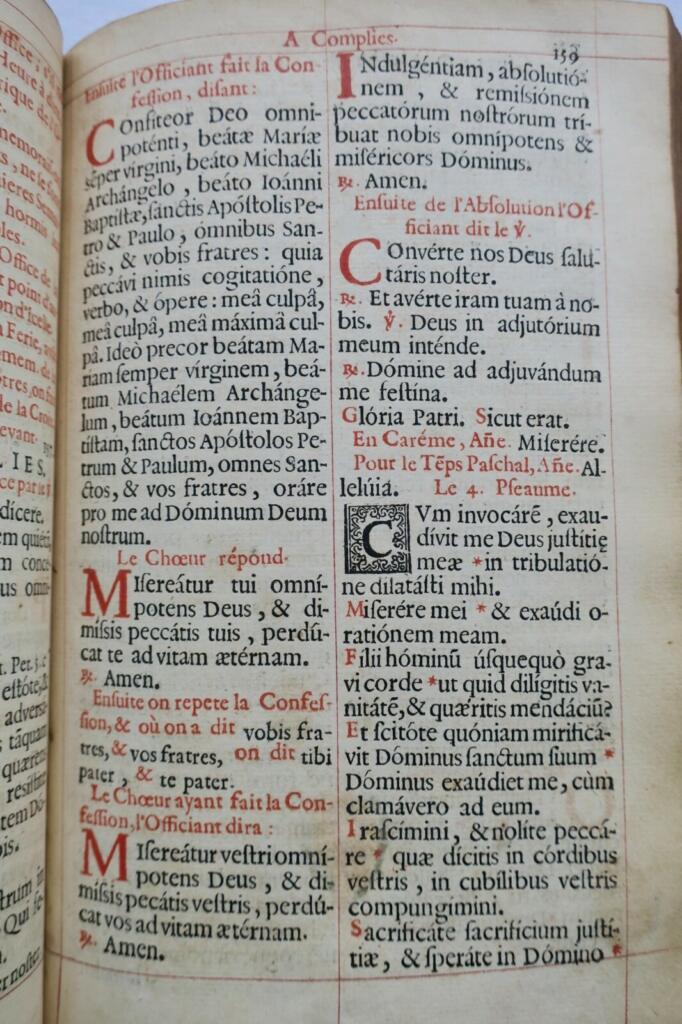 A Complies.
159
Ensuite l'Officiant fait la Con-
fession, disant:
COnfiteor Deo omni-
poténti, beátæ Maríæ
séper virgini, beáto Michaéli
Archángelo, beáto Ioánni
Baptistæ, sanctis Apóstolis Pe-
tro & Paulo, ómnibus San-
ctis, & vobis fratres: quia
peccávi nimis cogitatióne,
verbo, & ópere: meâ culpâ,
meâ culpâ, meâ máximâ cul-
pâ. Ideò precor beátam Ma-
riam semper vírginem, beá-
tum Michaélem Archánge-
lum, beátum Ioánnem Bap-
tistam, sanctos Apóstolos Pe-
trum & Paulum, omnes San-
ctos, & vos fratres, oráre
pro me ad Dóminum Deum
nostrum.
Le Chœur répond.
MIsereátur tui omní-
potens Deus, & di-
missis peccátis tuis, perdú-
cat te ad vitam ætérnam.
℟. Amen.
Ensuite on repete la Confes-
sion, & où on a dit vobis fra-
tres, & vos fratres, on dit tibi
pater, & te pater.
Le Chœur ayant fait la Con-
fession, l'Officiant dira:
MIsereátur vestri omní-
potens Deus, & di-
missis pecátis vestris, perdú-
cat vos ad vitam ætérnam.
℟. Amen.
INdulgéntiam, absolutió-
nem, & remissiónem
peccatórum nostrórum trí-
buat nobis omnípotens &
miséricors Dóminus.
℟. Amen.
Ensuite de l'Absolution l'Of-
ficiant dit le ℣.
COnvérte nos Deus salu-
táris noster.
℟. Et avérte iram tuam à no-
bis. ℣. Deus in adjutórium
meum inténde.
℟. Dómine ad adjuvándum
me festina.
Glória Patri. Sicut erat.
En Caréme, Añe. Miserére.
Pour le Tẽps Paschal, Añe. Al-
lelúiá. Le 4. Pseaume.
CVm invocárẽ, exau-
dívit me Deus justitię
meæ * in tribulatió-
ne dilatásti mihi.
Miserére mei * & exaúdi o-
ratiónem meam.
Filii hóminũ úsquequò gra-
vi corde * ut quid dilígitis va-
nitátẽ, & quæritis mendáciũ?
Et scitóte quóniam mirificá-
vit Dóminus sanctum suum *
Dóminus exaúdiet me, cùm
clamávero ad eum.
Irascímini, & nolíte peccá-
re * quæ dícitis in córdibus
vestris, in cubílibus vestris
compungímini.
Sacrificáte sacrifícium justí-
tiæ, & speráte in Dómino *